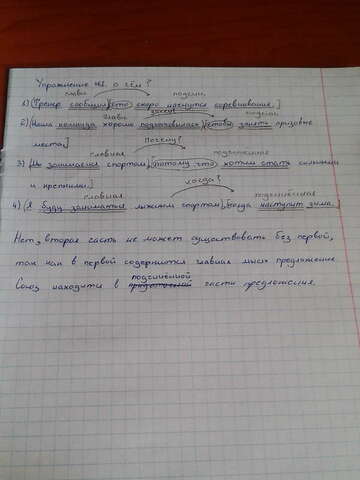 Упражнение №1. о чём?
главн. подчин.
1) [Тренер сообщил,] (что скоро начнутся соревнования.)
главн. зачем? подчин.
2) [Наша команда хорошо подготовилась,] (чтобы занять призовые
места.)
Почему?
главная подчинённая
3) [Мы занимаемся спортом,] (потому что хотим стать сильными
и крепкими.)
когда?
главная подчинённая
4) [Я буду заниматься лыжным спортом,] (когда наступит зима.)
Нет, вторая часть не может существовать без первой,
так как в первой содержится главная мысль предложения.
подчинённой
Союз находится в части предложения.